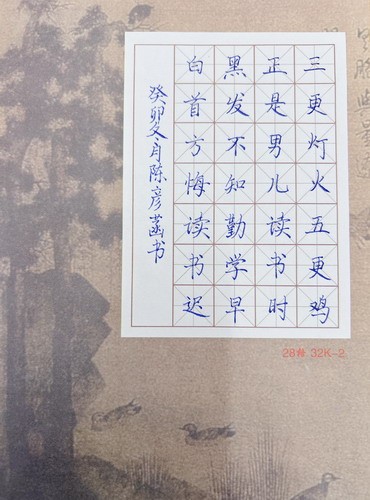 三更灯火五更鸡
正是男儿读书时
黑发不知勤学早
白首方悔读书迟
癸卯冬月陈彦菡书
28格 32K-2